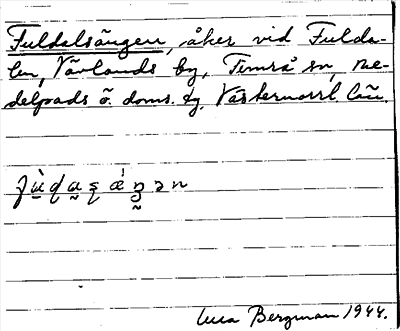 Fuldalsängen, åker vid Fulda-
len, Vävlands by, Timrå sn, Me-
delpads ö. doms. tg. Västernorrl. län.
Bergman 1944.